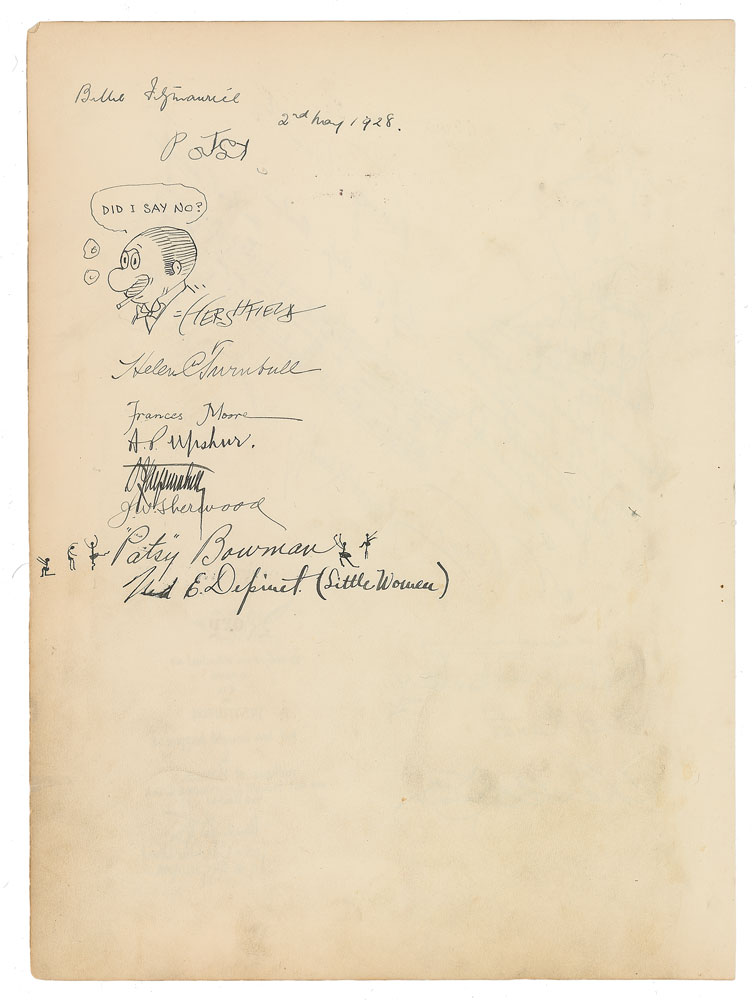 Fitzmaurice
2nd May 1928.
POTSY
DID I SAY NO?
=HERSHFIELD
Helen C Turnbull
Frances Moore
A. P. Upshur.
J. W. Sherwood
"Patsy" Bowman
Ned E. Depinet. (Little Women)